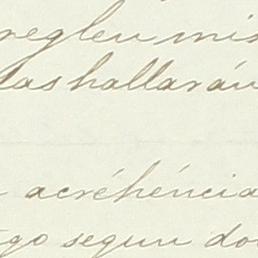 reglen mis
las hallarán
acréhéncia
go segun do